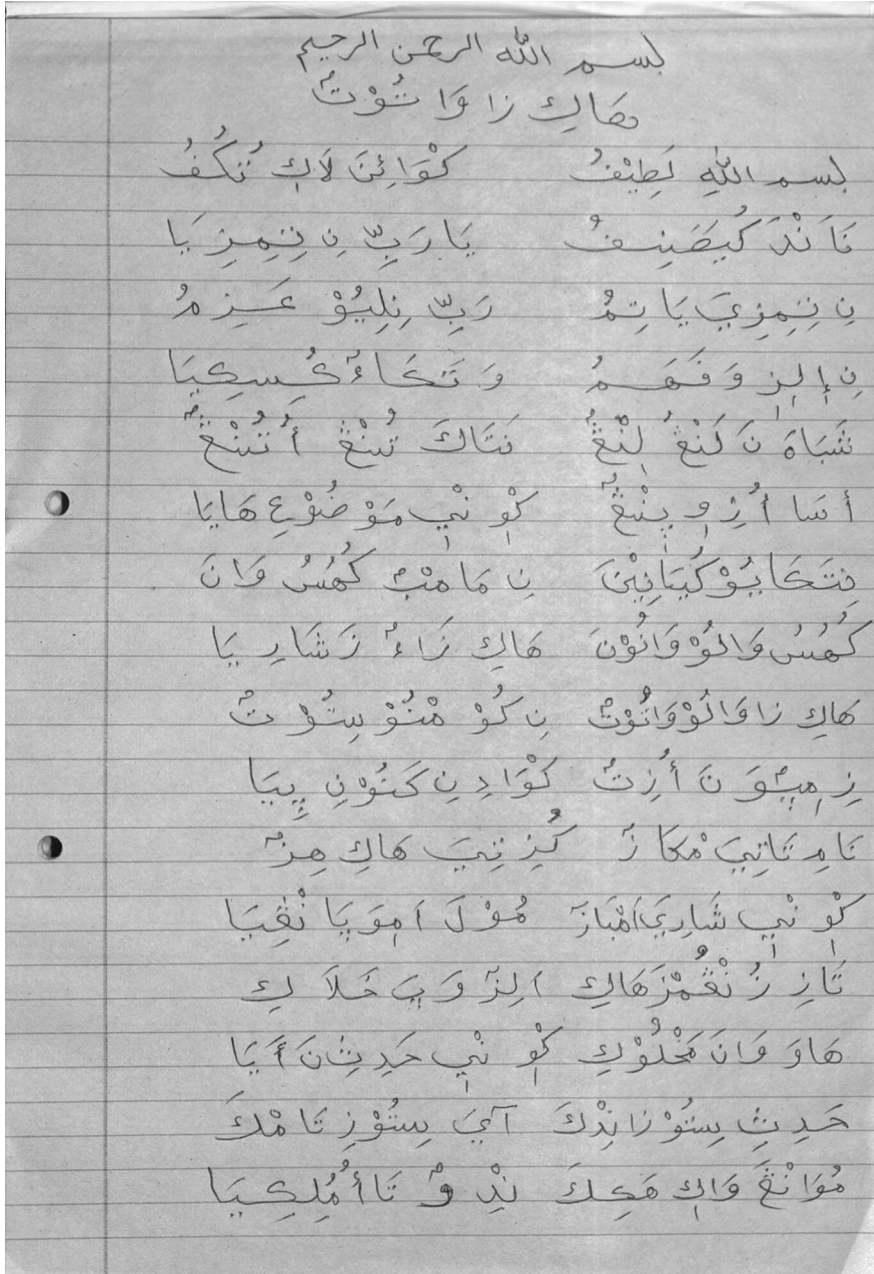 بسم الله الرحمن الرحيم
هَاكِ زَا وَا تُوْتٗ
بسم اللهِ لَطِيْفُ كْوَائِنَ لَاكِ تُكُفُ
نَا نْدَ كُيصَنِفُ يَا رَبِّ نِ تِمِزِيَا
نِ تِمِزِيَ يَا تِمُ رَبِّ نِلِيُوْ عَزِمُ
نِ إِلِزِ وَ فَهَمُ وَ تَكَاءٗ كُسِكِيَا
شَبَاهَ نَ كَنْغَ لِنْغٗ نَتَاكَ تُنْغَ أُتُنْغٗ
أَسَا أُزِوِيِنْغٗ كْوِنْيِ مَوْضُوْعِ هَايَا
نِتَكَايُوْ كُيَانِيْنَ نِ مَامْبٗ كُهُسُ وَانَ
كُهُسُ وَالُوْ وَانُوْنَ هَاكِ زَاءٗ زَ شَارِيَا
هَاكِ زَا وَالُوْ وَاتُوْتٗ نِ كُوْ مْنُوْ سِتُوْتٗ
زِمِيٗوَ نَ أُزِتٗ كْوَا دِنِ كَتُوْنِ پِيَا
نَامِ نَانِيَ مْكَازٗ كُزِنِيَ هَاكِ هِزٗ
كْوِنْيِ شَارِيَ اَمْبَازٗ مُوْلَ اَمِوَپَا نْڠِيَا
تَازِ زُنْڠُمْزَ هَاكِ اَلِزٗوَپَ خَلَاكِ
هَاوَ وَانَ مَخْلُوْكِ كْوِنْيِ حَدِثِ نَ أَيَا
حَدِثِ سِتُوْزَانِدْكَ آيَ سِتُوْزِتَامْكَ
مُوَانْڠَ وَاكِ هَكِكَ نِدْوٗ تَاأُمُلِكِيَا